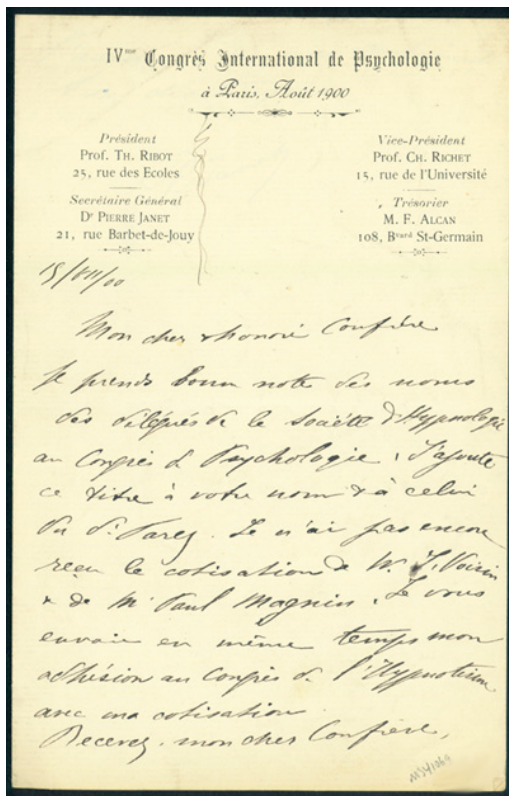 IVme Congrès International de Psychologie
à Paris, Août 1900
Président
Prof. Th. Ribot
25, rue des Ecoles
Secrétaire Général
Dr Pierre Janet
21, rue Barbet-de-Jouy
Vice-Président
Prof. Ch. Richet
15, rue de l'Université
Trésorier
M. F. Alcan
108, Bvard St-Germain
15/VII/00
Mon cher & honoré Confrère
Je prends bonne note des noms
des délégués de la Société d'Hypnologie
au Congrès de Psychologie. J'ajoute
ce titre à votre nom & à celui
du Dr Farez. Je n'ai pas encore
reçu la cotisation de Mr J. Voisin
& de Mr Paul Magnin. Je vous
envoie en même temps mon
adhésion au Congrès de l'Hypnotisme
avec ma cotisation
Recevez, mon cher Confrère,